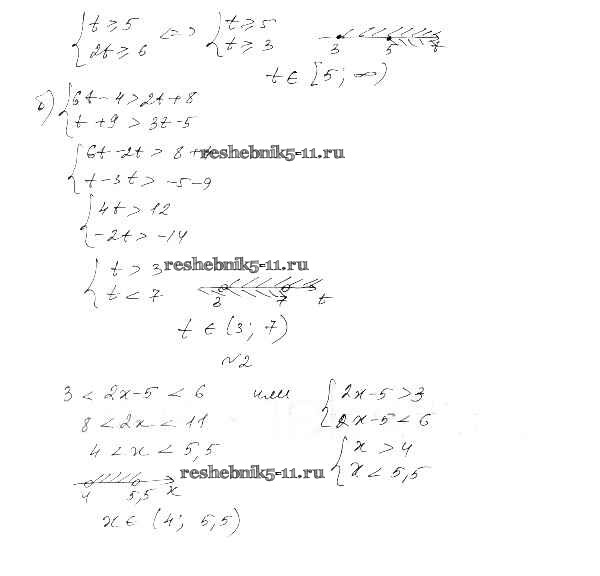 { t ≥ 5 <=> { t ≥ 5
{ 2t ≥ 6 { t ≥ 3
3 5 t
t ∈ [5; ∞)
б) { 6t - 4 > 2t + 8
{ t + 9 > 3t - 5
{ 6t - 2t > 8 +
reshebnik5-11.ru
{ t - 3t > -5 - 9
{ 4t > 12
{ -2t > -14
{ t > 3
reshebnik5-11.ru
{ t < 7
3 7 t
t ∈ (3; 7)
№2
3 < 2x - 5 < 6 или { 2x - 5 > 3
8 < 2x < 11 { 2x - 5 < 6
4 < x < 5,5 { x > 4
{ x < 5,5
reshebnik5-11.ru
4 5,5 x
x ∈ (4; 5,5)